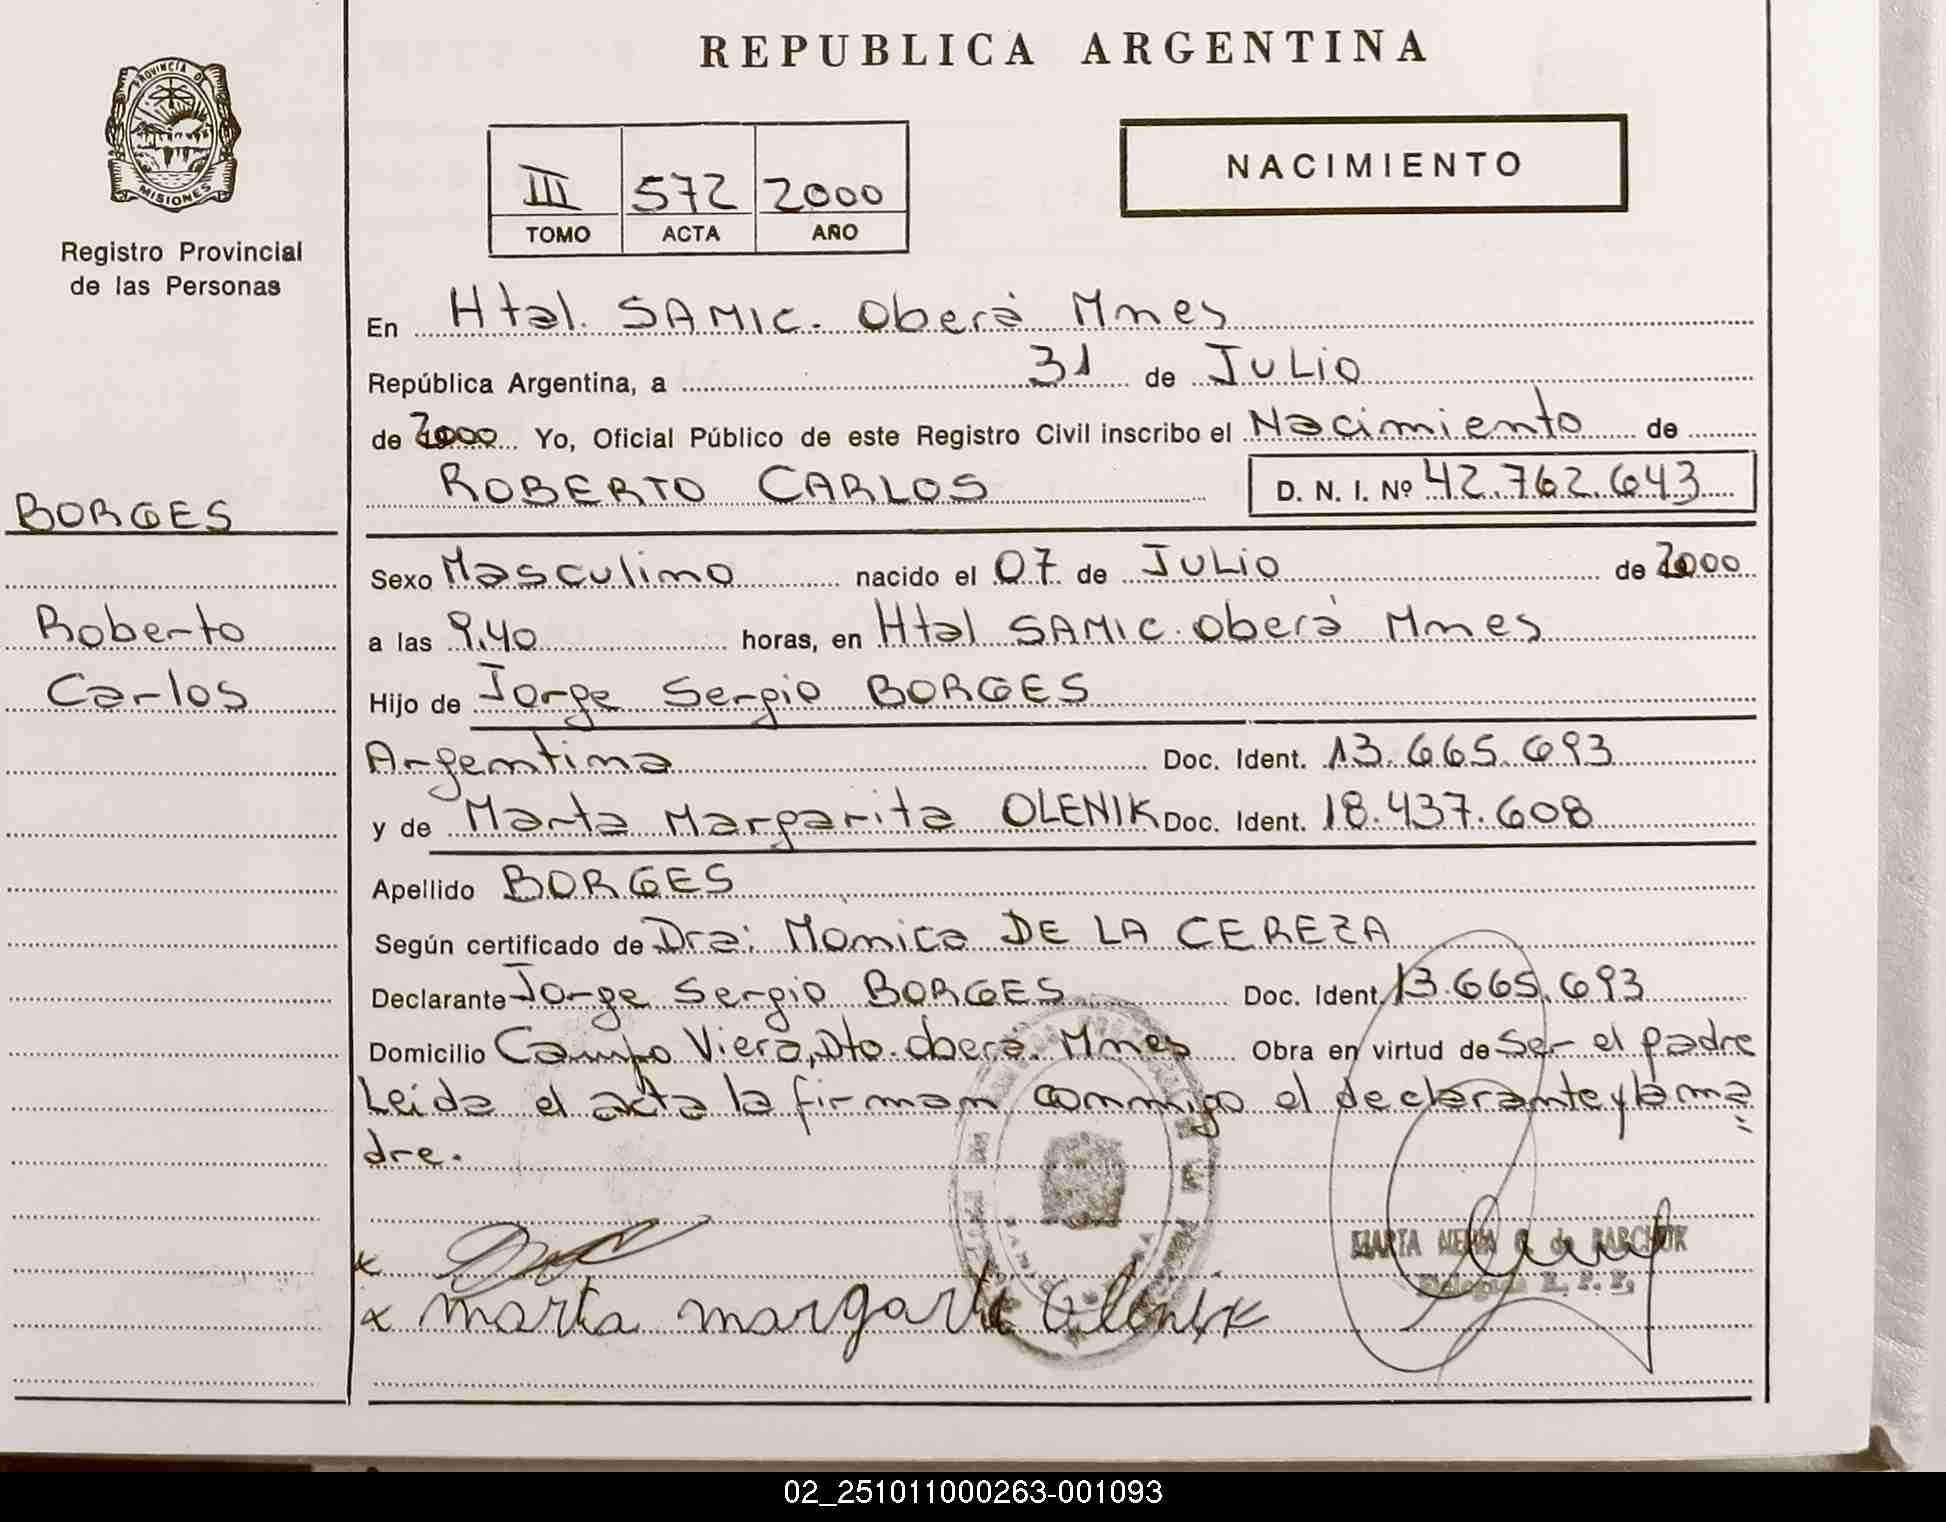 REPUBLICA ARGENTINA
PROVINCIA DE
MISIONES
Registro Provincial
de las Personas
NACIMIENTO
III 572 2000
TOMO ACTA AÑO
En Htal. SAMIC. Oberá Mnes
República Argentina, a 31 de JULIO
de 2000 Yo, Oficial Público de este Registro Civil inscribo el Nacimiento de
ROBERTO CARLOS D. N. I. Nº 42.762.643
BORGES
Roberto
Carlos
Sexo Masculino nacido el 07 de JULIO de 2000
a las 9.40 horas, en Htal SAMIC. Oberá Mnes
Hijo de Jorge Sergio BORGES
Argentina Doc. Ident. 13.665.693
y de Marta Margarita OLENIK Doc. Ident. 18.437.608
Apellido BORGES
Según certificado de Dra: Monica DE LA CEREZA
Declarante Jorge Sergio BORGES Doc. Ident. 13.665.693
Domicilio Campo Viera, Dto. Oberá. Mnes Obra en virtud de Ser el padre
Leida el acta la firman conmigo el declarante y la ma
dre.
MARTA de BARCHUK
Delegada R. P. P.
x
x marta margarita Olenik
02_251011000263-001093